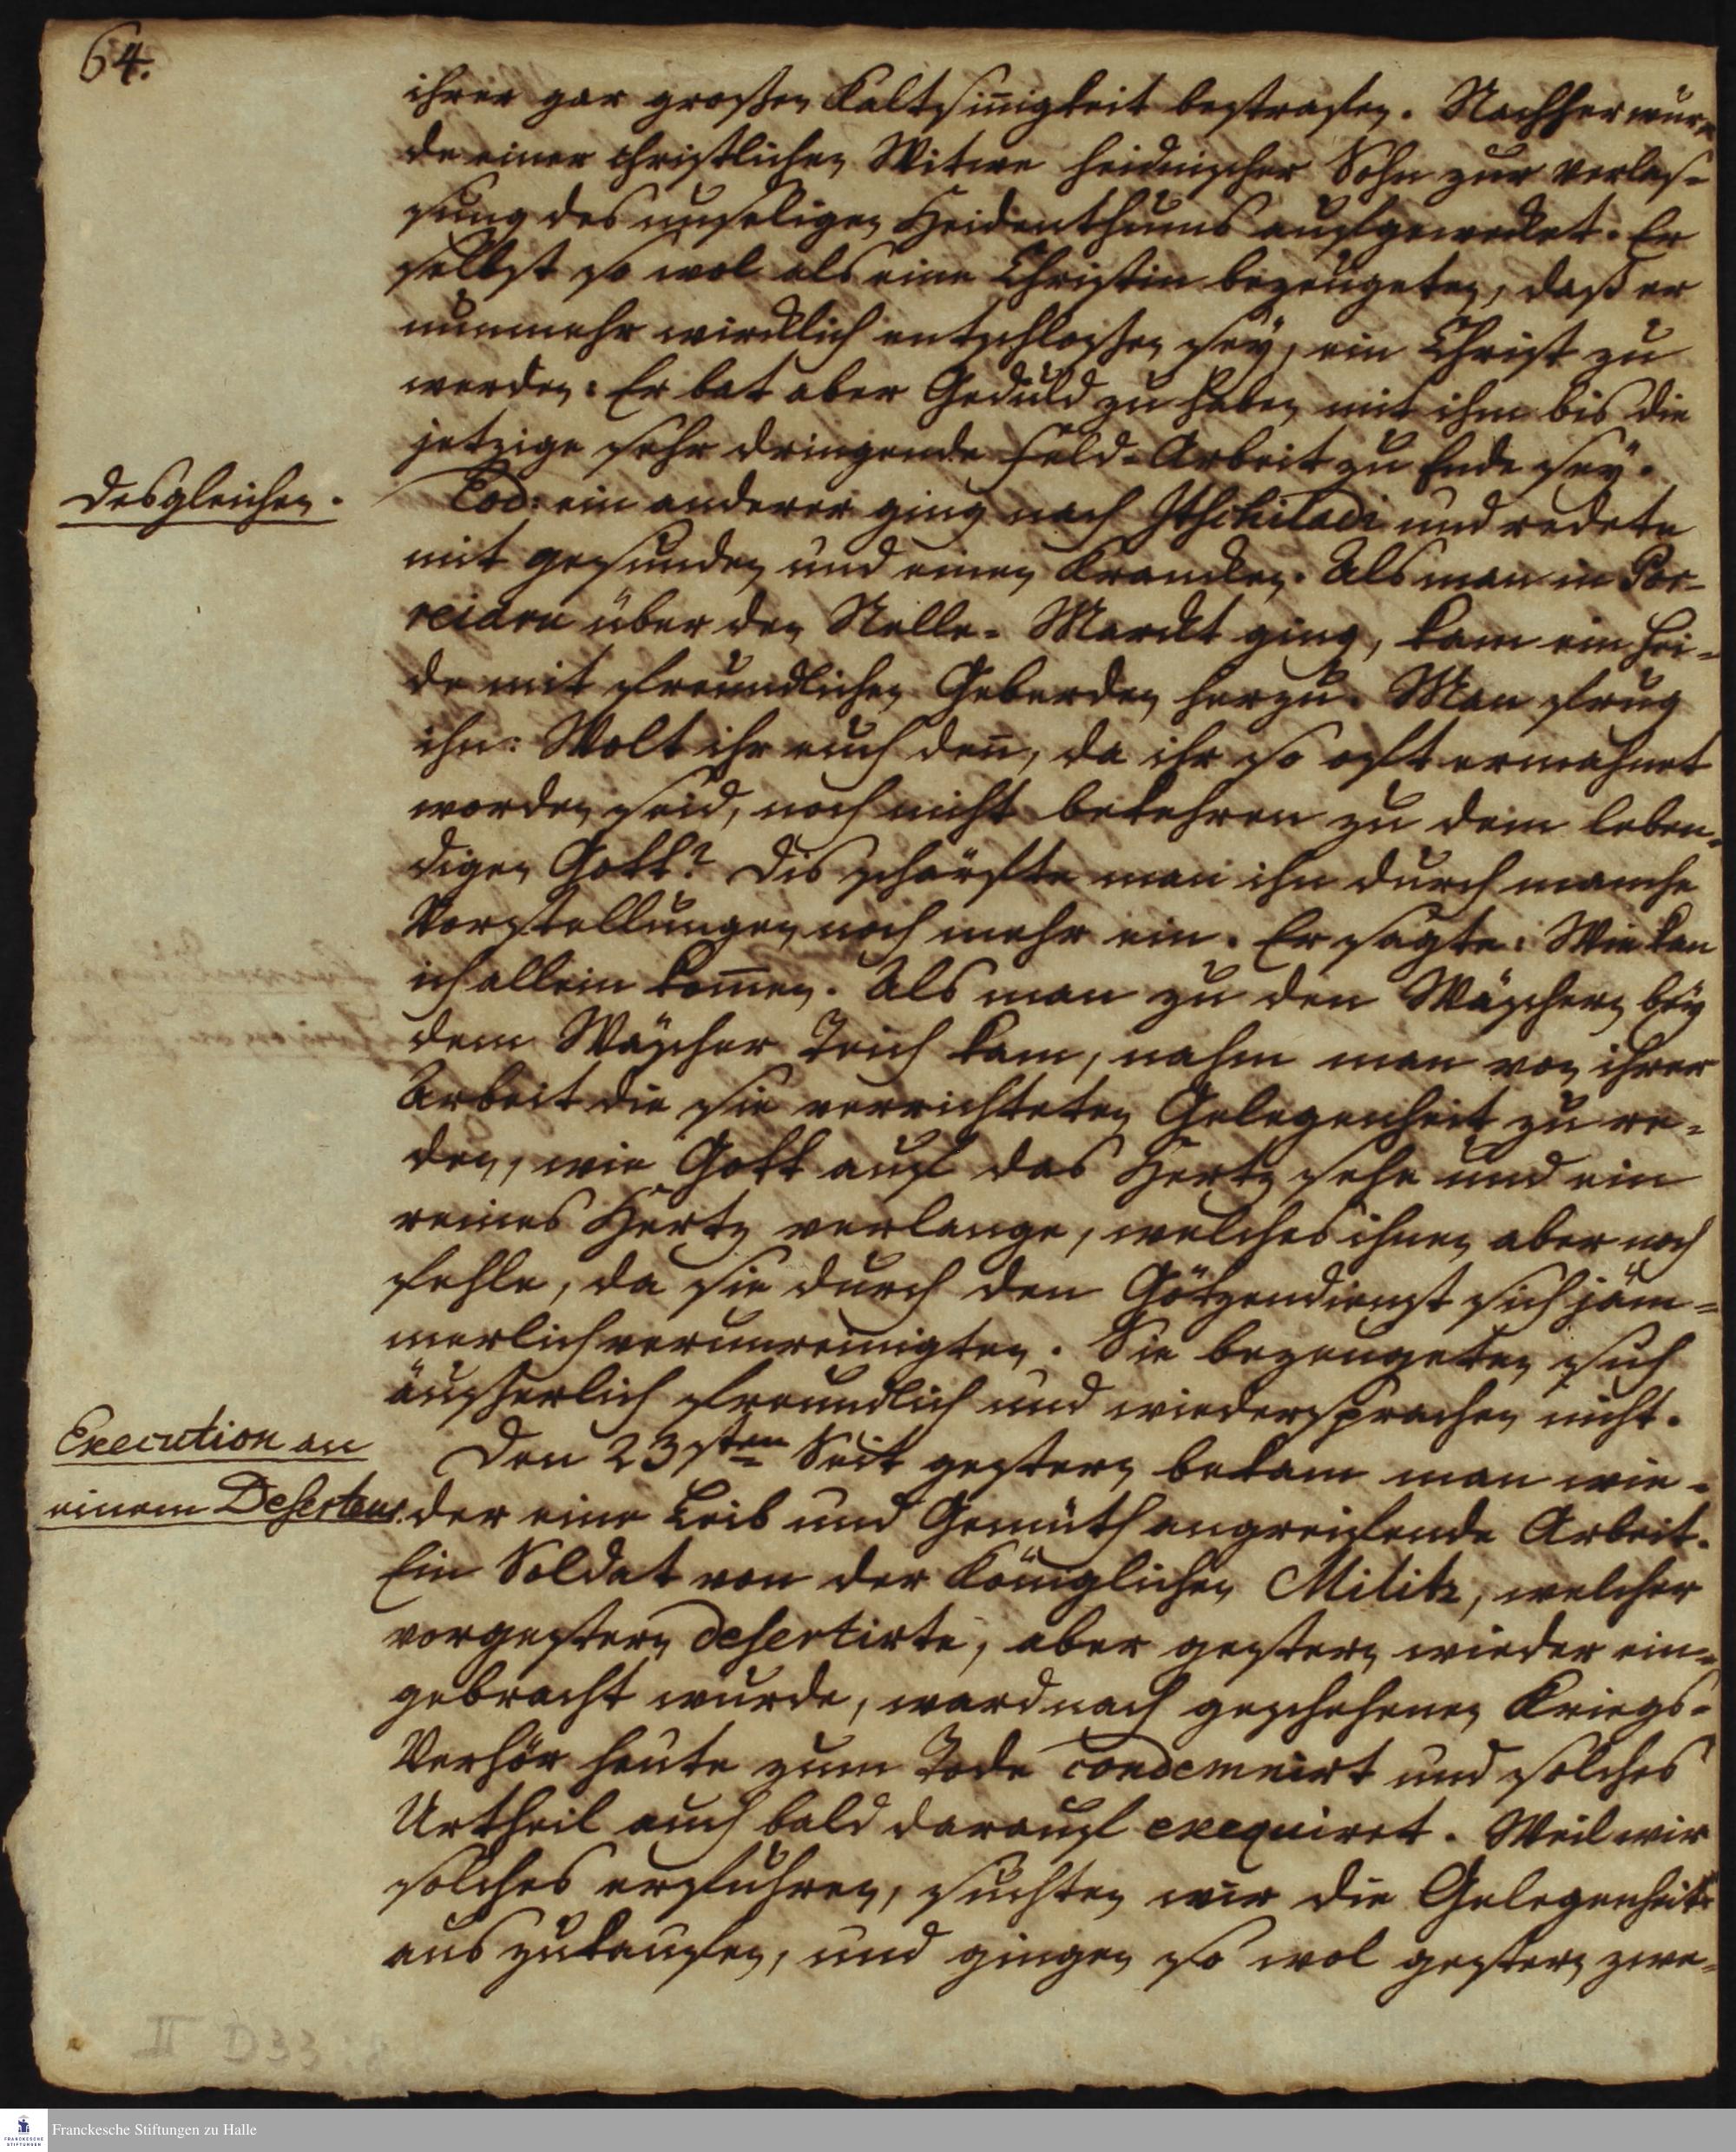 64.
ihrer gar großen Kaltsiñigkeit bestrafen. Nachher wur-
de einer christlichen Witwe heidnischer Sohn zur Verlas-
sung des unseligen Heidenthums aufgewecket. Er
selbst so wol als eine Christin bezeugeten, daß er
nunmehr wircklich entschlossen sey, ein Christ zu
werden. Er bat aber Geduld zu haben mit ihm bis die
jetzige sehr dringende Feld-Arbeit zu Ende sey.
desgleichen.
Eod: ein anderer ging nach Itschiladi und redete
mit gesunden und einen Krancken. Als man in Por-
reiaru über den Nelle-Marckt ging, kam ein Hei-
de mit freundlichen Geberden herzu. Man frug
ihn: Wolt ihr euch deñ, da ihr so oft ermahnet
worden seid, noch nicht bekehren zu dem leben-
digen Gott? Dis schärfte man ihn durch manche
Vorstellungen noch mehr ein. Er sagte: Wie kan
ich allein kom̃en. Als man zu den Wäschern bey
dem Wäscher Teich kam, nahm man von ihrer
Arbeit die sie verrichteten Gelegenheit zu re-
den, wie Gott auf das Hertz sehe und ein
reines Hertz verlange, welches ihnen aber noch
fehle, da sie durch den Götzendienst sich jäm-
merlich verunreinigten. Sie bezeugeten sich
äuserlich freundlich und wiedersprachen nicht.
Execution an
einem Deserteur.
Den 23sten Seit gestern bekam man wie-
der eine Leib und Gemüth angreifende Arbeit.
Ein Soldat von der Königlichen Militz, welcher
vorgestern desertirte, aber gestern wieder ein-
gebracht wurde, ward nach geschehenen Kriegs-
Verhör heute zum Tode condemnirt und solches
Urtheil auch bald darauf exequiret. Weil wir
solches erfuhren, suchten wir die Gelegenheit
auszukaufen, und gingen so wol gestern zwe-
II D33:8
Franckesche Stiftungen zu Halle